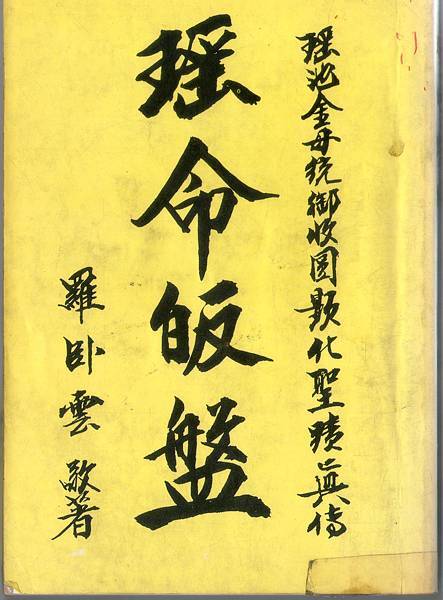 瑶池金母統御收圓顯化聖蹟真傳
瑶命皈盤
羅臥雲敬著